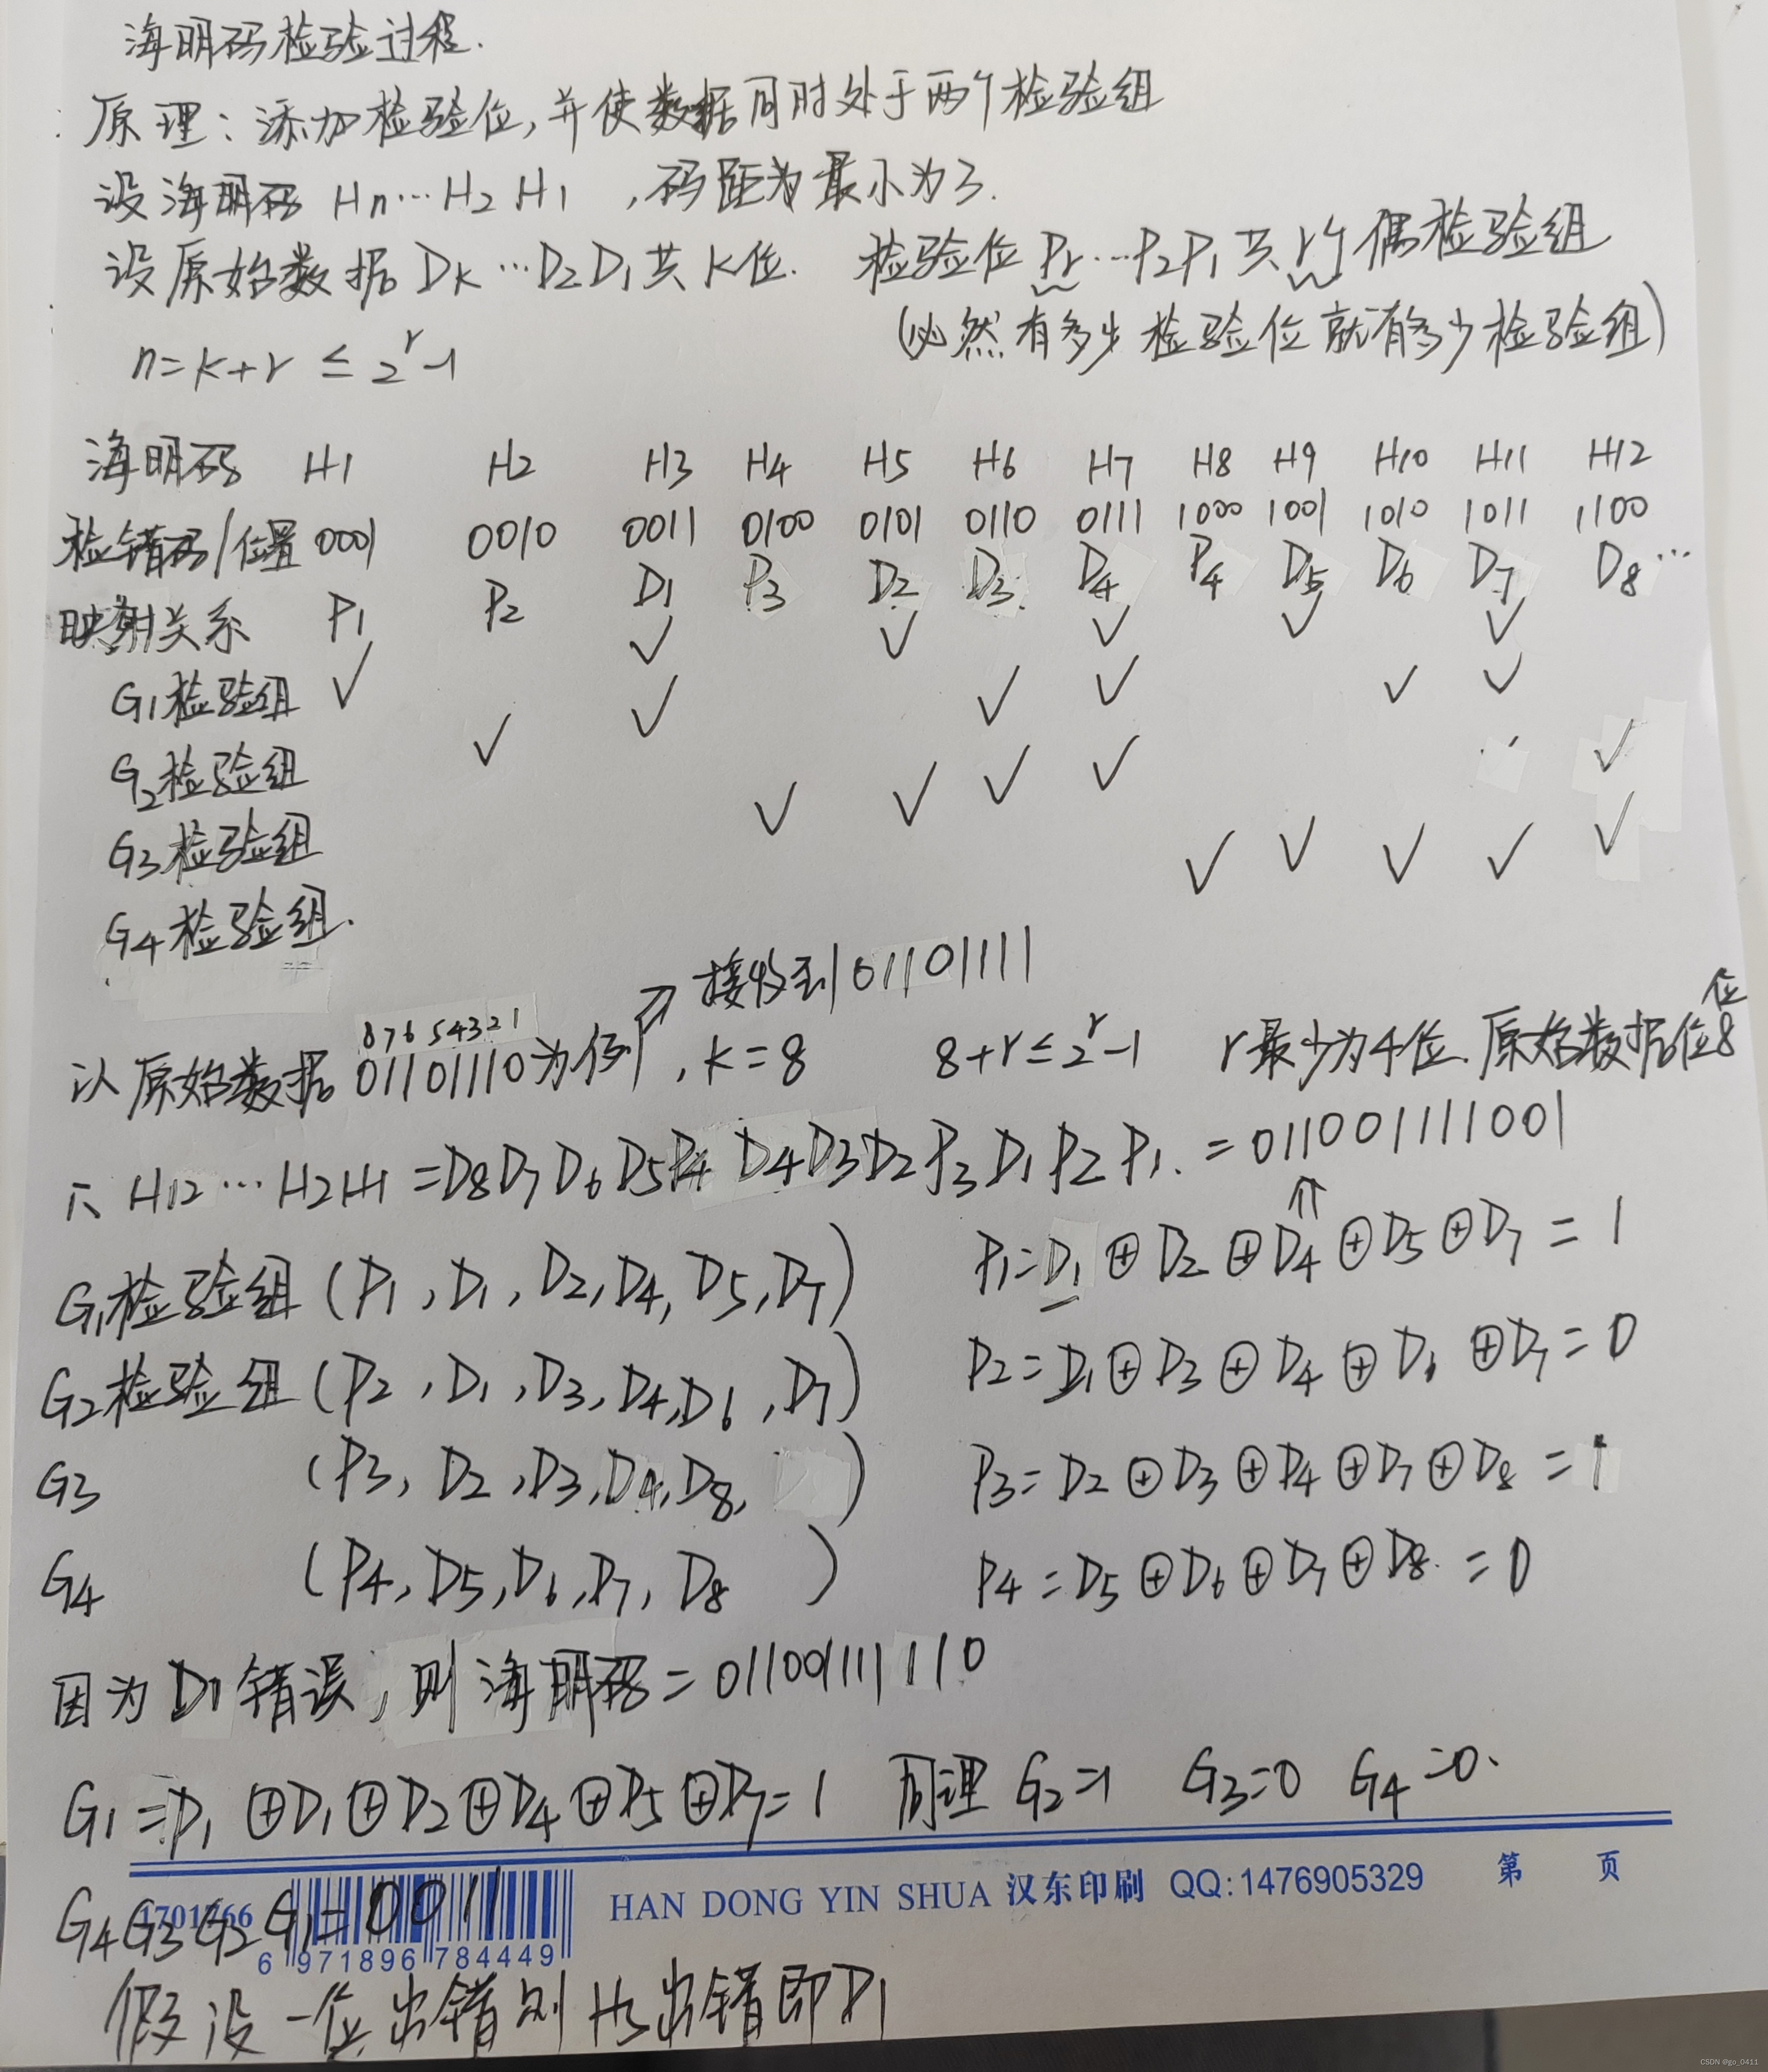 海明码检验过程.
原理:添加检验位,并使数据同时处于两个检验组
设海明码 Hn…H2 H1 ,码距为最小为3.
设原始数据 Dk…D2D1共k位. 检验位 Pr…P2P1共r个偶检验组
(必然有多少检验位就有多少检验组)
n=k+r ≤ 2^r-1
海明码 H1 H2 H3 H4 H5 H6 H7 H8 H9 H10 H11 H12
检错码/位置 0001 0010 0011 0100 0101 0110 0111 1000 1001 1010 1011 1100
映射关系 P1 P2 D1 P3 D2 D3 D4 P4 D5 D6 D7 D8 …
G1检验组 ✓ ✓ ✓ ✓ ✓ ✓
G2检验组 ✓ ✓ ✓ ✓ ✓ ✓
G3检验组 ✓ ✓ ✓ ✓ ✓
G4检验组. ✓ ✓ ✓ ✓ ✓
↗ 接收到01101111
8 7 6 5 4 3 2 1
以原始数据01101110为例, k=8 8+r≤2^r-1 r最少为4位.原始数据位8位
H12…H2H1 =D8D7D6D5P4D4D3D2P3D1P2P1. =011001111001
G1检验组(P1,D1,D2,D4,D5,D7) P1=D1⊕D2⊕D4⊕D5⊕D7=1
G2检验组(P2,D1,D3,D4,D6,D7) P2=D1⊕D3⊕D4⊕D6⊕D7=0
G3 (P3,D2,D3,D4,D8, ) P3=D2⊕D3⊕D4⊕D7⊕D8=1
G4 (P4,D5,D6,D7,D8 ) P4=D5⊕D6⊕D7⊕D8.=0
因为D1错误,则海明码=011001111110
G1=P1⊕D1⊕D2⊕D4⊕D5⊕D7=1 同理 G2=1 G3=0 G4=0.
HAN DONG YIN SHUA 汉东印刷 QQ:1476905329 第 页
G4G3G2G1=0011
6 971896 784449
假设一位出错则H3出错即D1
CSDN @go_0411